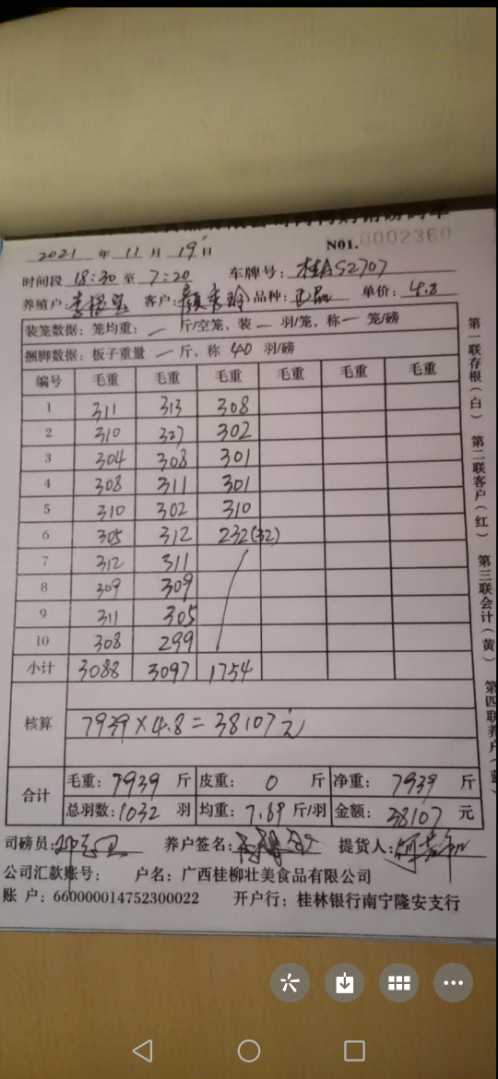 2021 年 11 月 19 日
N01.0002360
时间段 18:30 至 7:20 车牌号: 桂AS2707
养殖户: 客户: 品种: 正品 单价: 4.8
装笼数据: 笼均重: — 斤/空笼、装 — 羽/笼, 称 — 笼/磅
捆脚数据: 板子重量 — 斤, 称 40 羽/磅
编号 毛重 毛重 毛重 毛重 毛重 毛重
1 311 313 308
2 310 307 302
3 304 308 301
4 308 311 301
5 310 302 310
6 305 312 232(32)
7 312 311
8 309 309
9 311 305
10 308 299
小计 3088 3097 1754
核算 7939×4.8=38107元
合计 毛重: 7939 斤 皮重: 0 斤 净重: 7939 斤
总羽数: 1032 羽 均重: 7.69 斤/羽 金额: 38107 元
司磅员: 养户签名: 提货人:
公司汇款账号: 户名: 广西桂柳壮美食品有限公司
账 户: 660000014752300022 开户行: 桂林银行南宁隆安支行
第一联存根(白) 第二联客户(红) 第三联会计(黄) 第四联养户